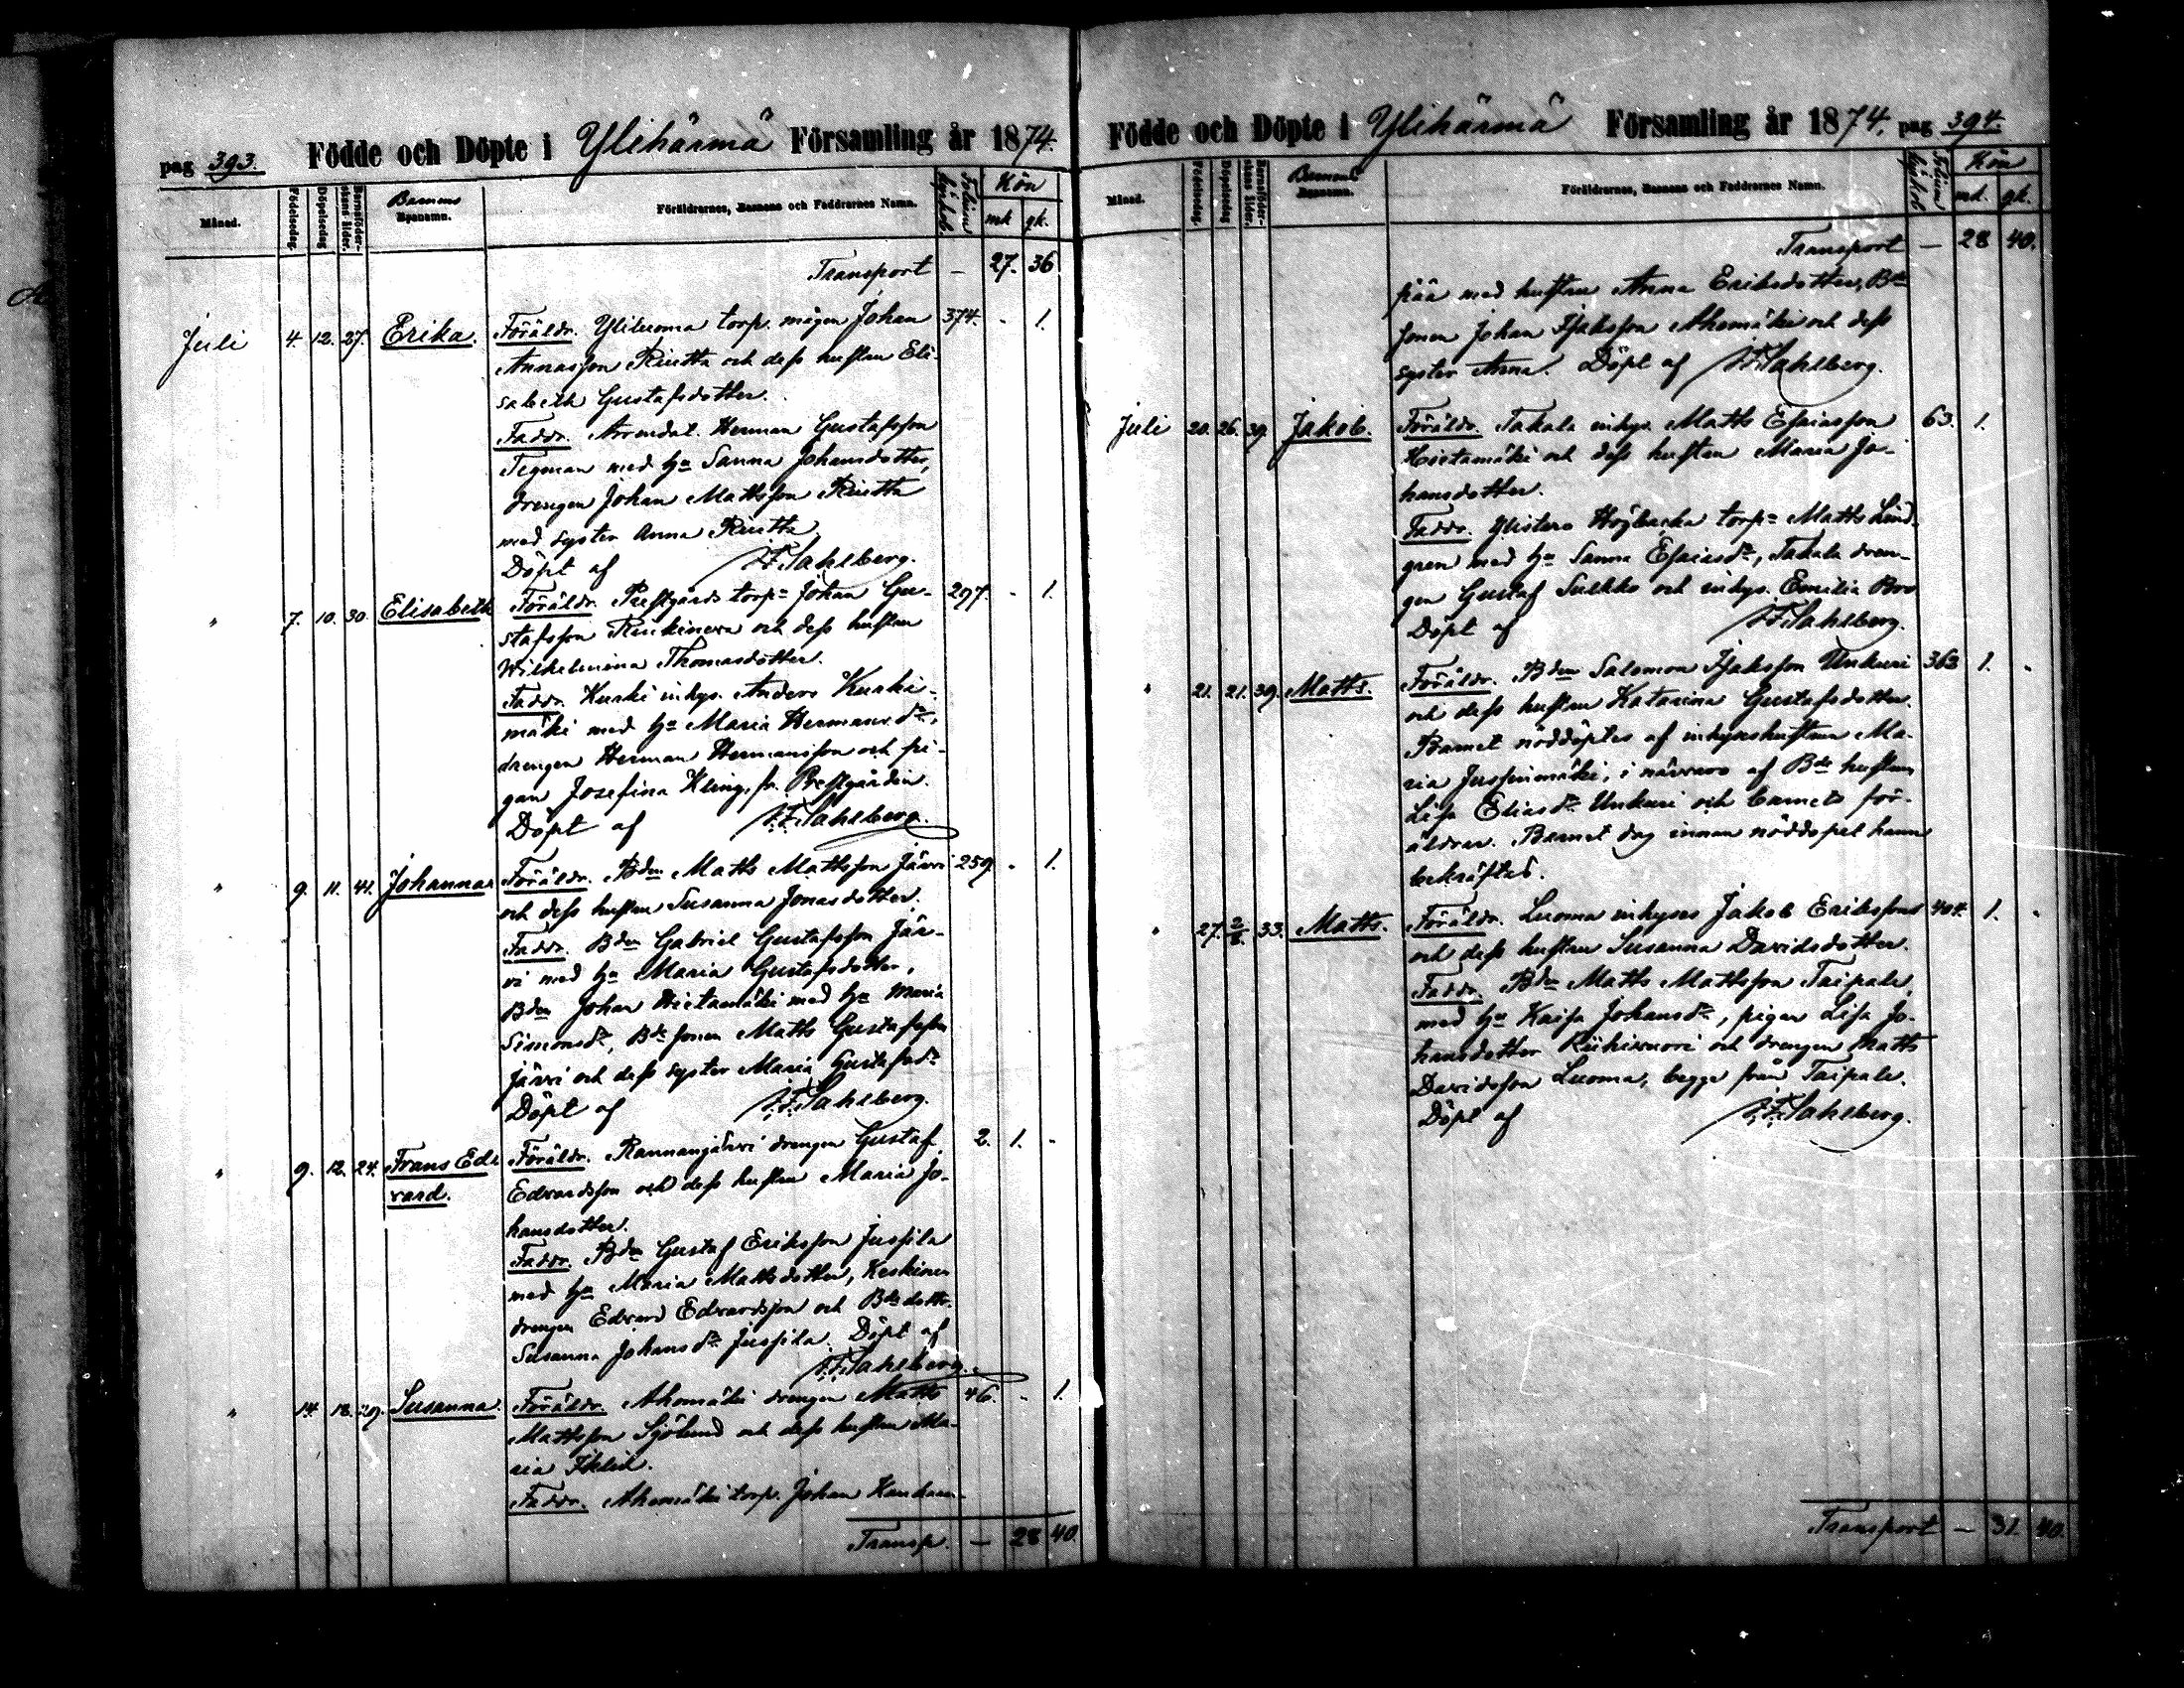 pag 393. Födde och Döpte i Ylihärmä Församling år 1874.
Månad. Födelsedag. Döpelsedag. Barnaföderskans ålder. Barnens namn. Föräldrarnes, Barnens och Faddrarnes Namn. Folium i kyrkob. Kön
mk gk.
Transport — 27. 36
Juli 4. 12. 27. Erika. Föräldr. Yliluoma torp. mågen Johan 374. - 1.
Annasson Riutta och dess hustru Eli-
sabeth Gustafsdotter.
Faddr. Arrendat. Herman Gustafsson
Tegman med hu Sanna Johansdotter,
drengen Johan Mattsson Riutta
med syster Anna Riutta
Döpt af F. Sahlberg.
" 7. 10. 30. Elisabeth Föräldr. Prestgårds torp= Johan Gu- 297. - 1.
stafsson och dess hustru
Wilhelmina Thomasdotter.
Faddr. Kuski inhys. Anders Kuski-
mäki med hu Maria Hermans dr,
drengen Herman Hermansson och pi-
gan Josefina Kling, fr. Prestgården.
Döpt af F. Sahlberg.
" 9. 11. 41. Johanna Föräldr. Bdn Matts Mattsson Järvi 259. - 1.
och dess hustru Susanna Jonasdotter.
Faddr. Bdn Gabriel Gustafsson Jär-
vi med hu Maria Gustafsdotter,
Bdn Johan Hietamäki med hu Maria
Simonsdr, Bde sonen Matts Gustafsson
Järvi och dess syster Maria Gustafsdr
Döpt af F. Sahlberg.
" 9. 12. 24. Frans Ed- Föräldr. Rannanjärvi drengen Gustaf 2. 1. -
vard. Edvardsson och dess hustru Maria Jo-
hansdotter.
Faddr. Bdn Gustaf Eriksson Jussila
med hu Maria Mattsdotter, Keskinen
drengen Edvard Edvardsson och Bde dottr.
Susanna Johansdr Jussila. Döpt af
F. Sahlberg.
" 14. 18. 29. Susanna. Föräldr. Ahomäki drengen Matts 46. - 1.
Mattsson Sjölund och dess hustru Ma-
ria
Faddr. Ahomäki torp. Johan
Transp. — 28 40.
Födde och Döpte i Ylihärmä Församling år 1874. pag 394.
Månad. Födelsedag. Döpelsedag. Barnaföderskans ålder. Barnens namn. Föräldrarnes, Barnens och Faddrarnes Namn. Folium i kyrkob. Kön
mk. gk.
Transport — 28 40.
pää med hustru Anna Eriksdotter, Bde
sonen Johan Isaksson Ahomäki och dess
syster Anna. Döpt af F. Sahlberg.
Juli 20. 26. 39. Jakob. Föräldr. Takala inhys. Matts Esaiasson 63. 1.
Hietamäki och dess hustru Maria Jo-
hansdotter.
Faddr. Högbacka torp= Matts Lind-
gren med hu Sanna Esaiasdr, Takala dren-
gen Gustaf Sulkko och inhys. Emilia Bro
Döpt af F. Sahlberg.
" 21. 21. 39. Matts. Föräldr. Bdn Salomon Isaksson Unkuri 363 1. -
och dess hustru Katarina Gustafsdotter.
Barnet nöddöptes af inhyseshustrun Ma-
ria Jussinmäki, i närvaro af Bde hustrun
Lisa Eliasdr Unkuri och barnets för-
äldrar. Barnet dog innan nöddopet hann
bekräftas.
" 27. 2/8. 33. Matts. Föräldr. Luoma inhyses Jakob Eriksson 404. 1. -
och dess hustru Susanna Davidsdotter.
Faddr. Bdn Matts Mattsson Taipale,
med hu Kaisa Johansdr, pigan Lisa Jo-
hansdotter och drengen Matts
Davidsson Luoma, begge från Taipale.
Döpt af F. Sahlberg.
Transport — 31. 40.